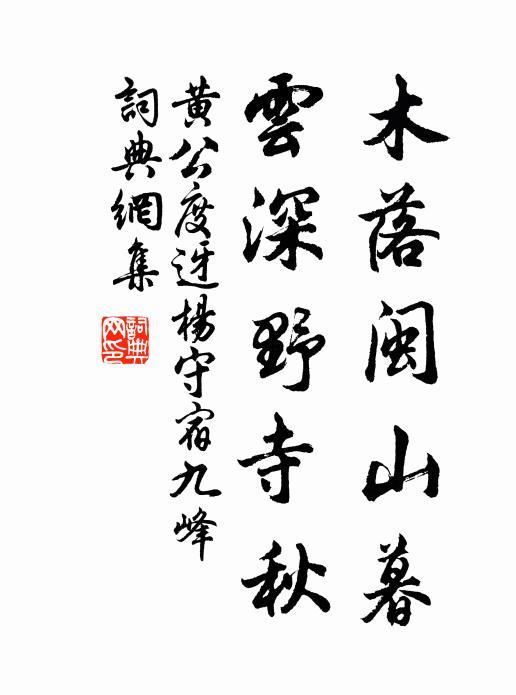 木落閩山暮
雲深野寺秋
黃公度迓楊守宿九峰
詞典網集
詞典
網印